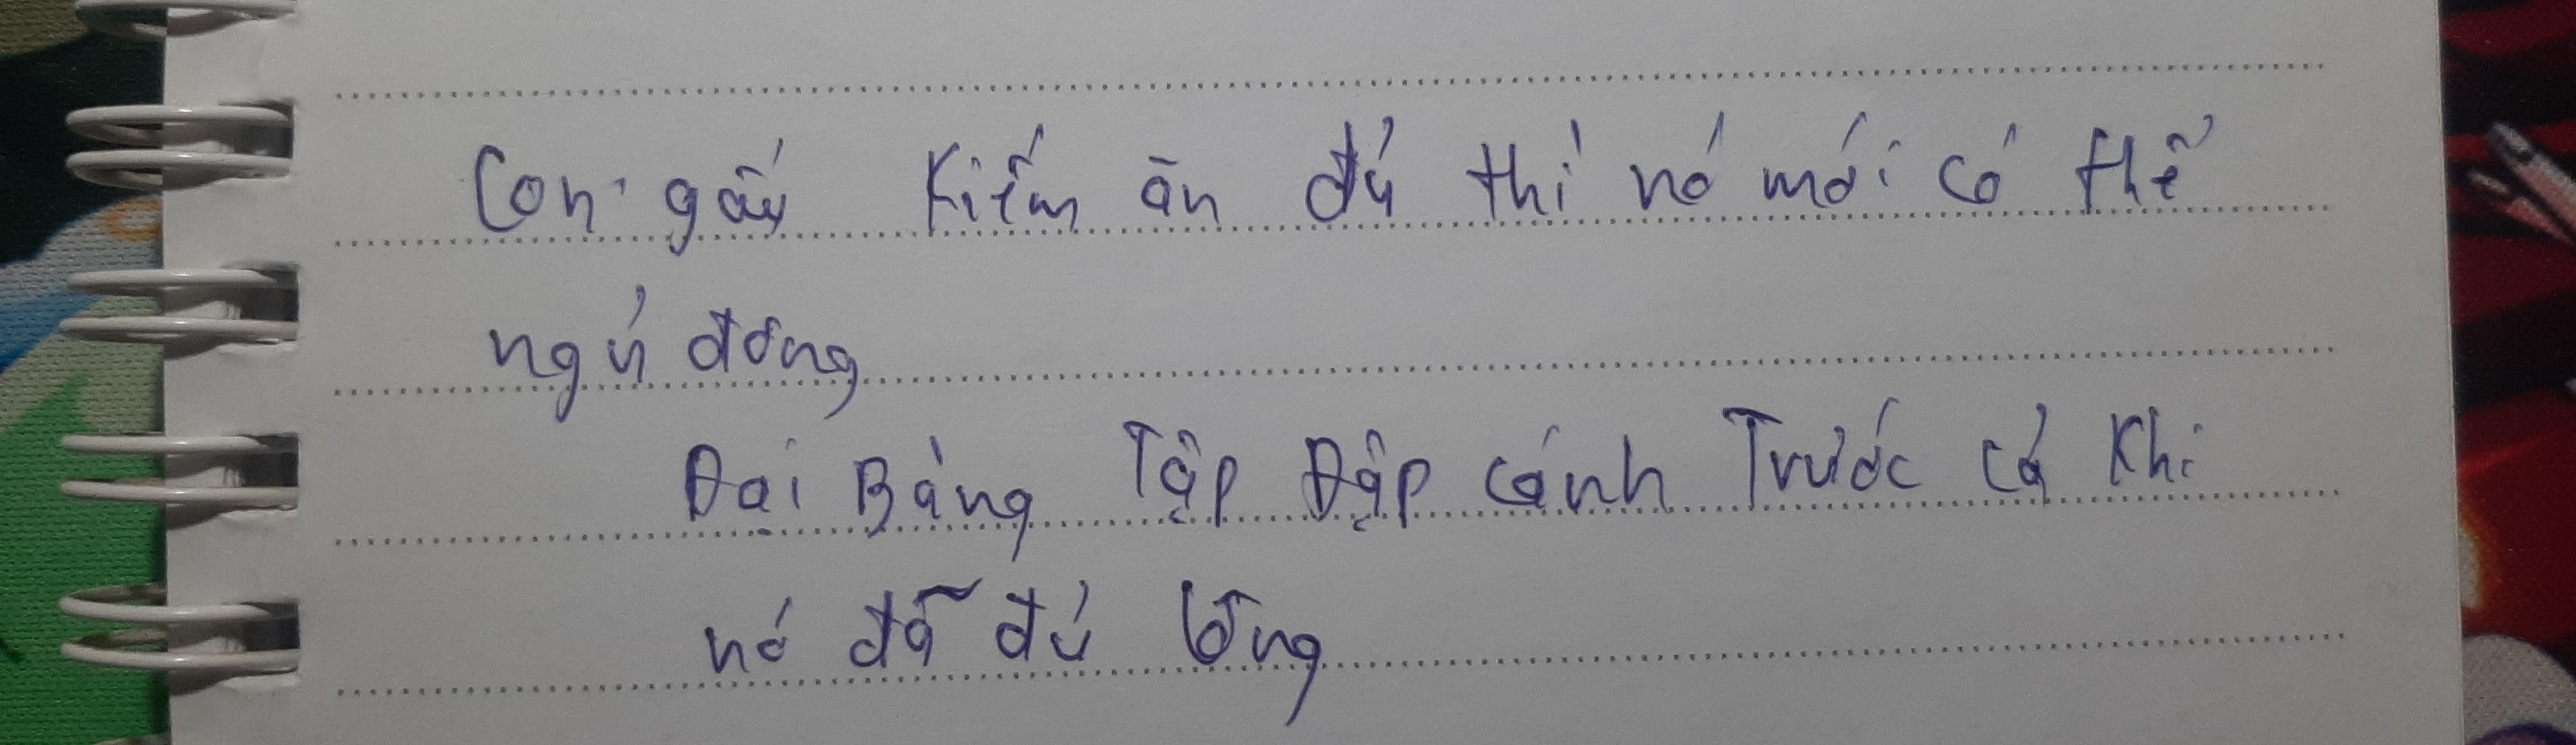 Con gấu Kiếm ăn đủ thì nó mới có thể
ngủ đông
Đại Bàng Tập Đập cánh Trước cả Khi
nó đã đủ lông